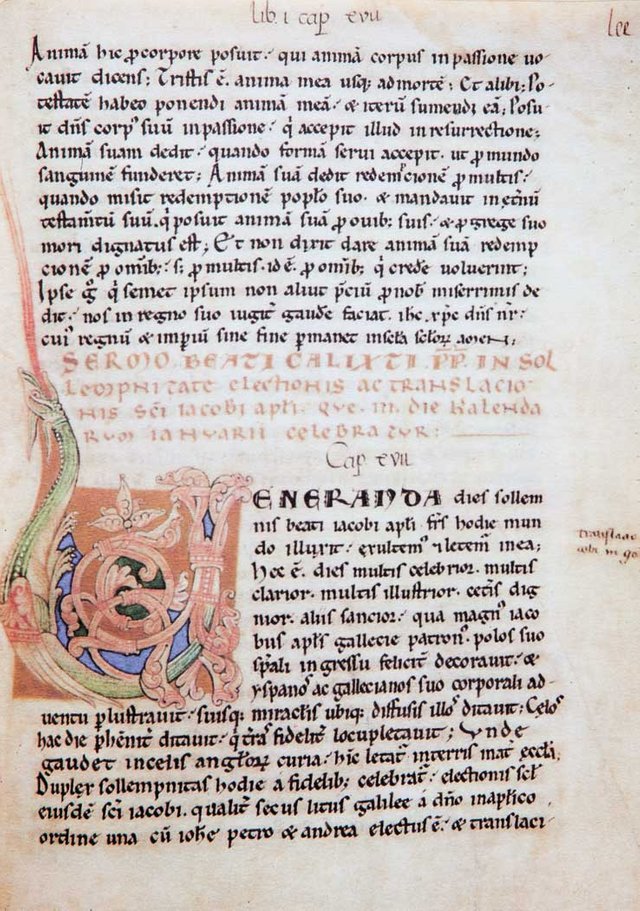 lib. i cap̄ xvii
Animā hic ꝓ corpore posuit · qui animā corpus in passione uo
cauit dicens; Tristis ē. anima mea usq; ad mortē; Et alibi; Po
testatē habeo ponendi animā meā · & iterū sumendi eā; Posu
it dn̄s corpꝰ suū in passione · q̇ accepit illud in resurrectione;
Animā suam dedit · quando formā serui accepit · ut ꝓ mundo
sanguinē funderet; Animā suā dedit redemꝑcionē ꝓ multis ·
quando misit redemptionē popl̄o suo · & mandauit in et̄nū
testam̄tū suū · q̇ posuit animā suā ꝓ ouib; suis · & ꝓ grege suo
mori dignatus est; Et non dixit dare animā suā redemp
cionē ꝓ om̄ib; s; ꝓ multis · id ē · ꝓ om̄ib; q̇ crede uoluerint;
Ipse g̊ q̇ semet ipsum non aliut p̄ciū ꝓ nob̄ miserrimis de
dit · nos in regno suo iugit̄ gaude faciat · ih̄c xp̄c dn̄s nr̄ ·
cuiꝰ regnū & imꝑiū sine fine ꝑmanet in sc̄la sc̄loꝝ amen ·
SERMO BEATI CALIXTI PP̄. IN SOL
lempnitate electionis ac translacio
nis sc̄i iacobi apl̄i · que · iii · die kalenda
rum ianuarii celebratur:
Cap̄ xvii
ENERANDA dies sollem
nis beati iacobi apl̄i · fr̄s hodie mun
do illuxit · exultemꝰ & letem̄ in ea;
Hec ē · dies multis celebrior · multis
clarior · multis illustrior · cet̄is dig
nior · aliis sanctior · qua magnꝰ iaco
bus apl̄s gallecie patronꝰ · polos suo
sp̄ali ingressu felicit̄ decorauit · &
yspanos ac gallecianos suo corporali ad
uentu ꝑlustrauit · suisq; miracl̄is ubiq; diffusis illos ditauit; Celos
hac die ꝑhēnit̄ ditauit · q̇ t̄ras fidelit̄ locupletauit; Vnde
gaudet in celis angl̄oꝝ curia · hīc letat̄ in terris mat̄ eccl̄a;
Duplex sollempnitas hodie a fidelib; celebrat̄ · electionis scl̄
eiusdē sc̄i iacobi · qualit̄ secus litus galilee a dn̄o in apl̄ico
ordine una cū ioh̄e petro & andrea electus ē · & translaci